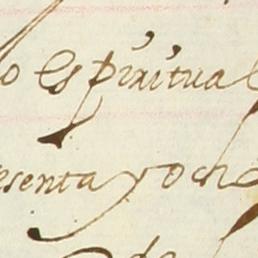 o Espiritual
esenta y och